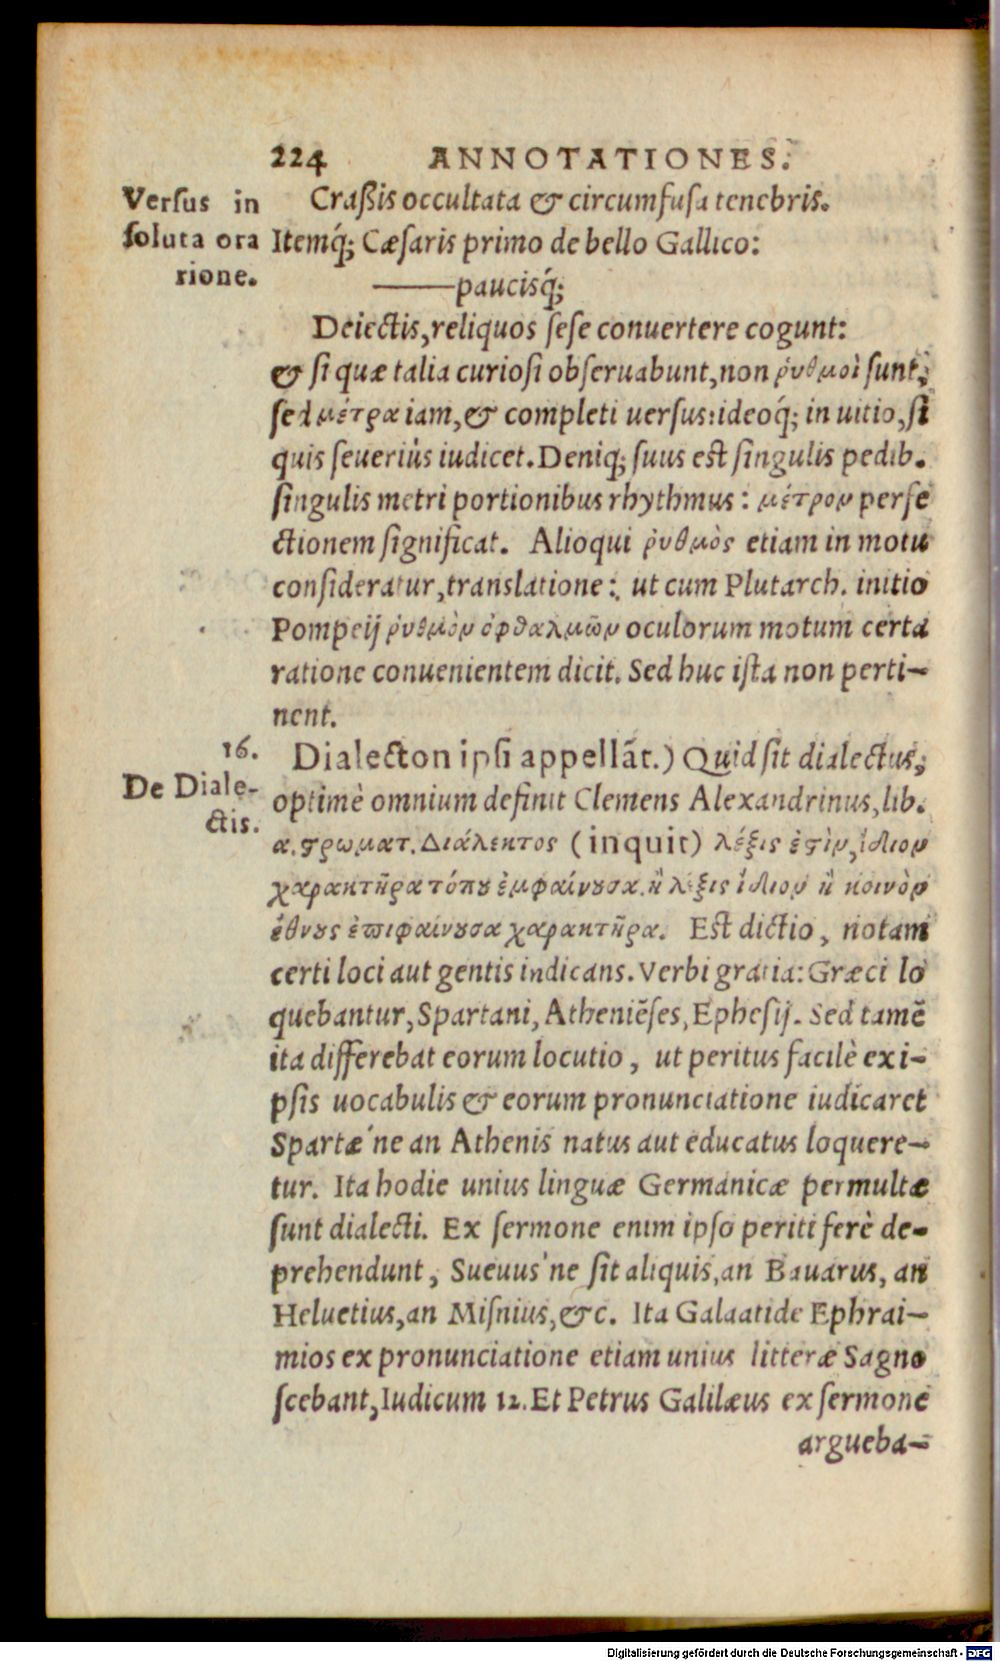 224 ANNOTATIONES.
Versus in
soluta ora
rione.
Craßis occultata & circumfusa tenebris.
Itemq́; Cæsaris primo de bello Gallico:
——paucisq́;
Deiectis, reliquos sese conuertere cogunt:
& si quæ talia curiosi obseruabunt, non ῥυθμοὶ sunt,
sed μέτρα iam, & completi uersus: ideoq́; in uitio, si
quis seueriùs iudicet. Deniq; suus est singulis pedib.
singulis metri portionibus rhythmus: μέτρον perfe
ctionem significat. Alioqui ῥυθμὸς etiam in motu
consideratur, translatione: ut cum Plutarch. initio
Pompeij ῥυθμὸν ὀφθαλμῶν oculorum motum certa
ratione conuenientem dicit. Sed huc ista non perti-
nent.
16.
De Diale-
ctis.
Dialecton ipsi appellãt.) Quid sit dialectus,
optimè omnium definit Clemens Alexandrinus, lib.
α. ϛρωματ. Διάλεκτος (inquit) λέξις ἐϛὶν, ἴδιον
χαρακτῆρα τόπου ἐμφαίνουσα. ἢ λέξις ἴδιον ἢ κοινὸν
ἔθνους ἐπιφαίνουσα χαρακτῆρα. Est dictio, notam
certi loci aut gentis indicans. Verbi gratia: Græci lo
quebantur, Spartani, Atheniẽses, Ephesij. Sed tamẽ
ita differebat eorum locutio, ut peritus facilè ex i-
psis uocabulis & eorum pronunciatione iudicaret
Spartæ'ne an Athenis natus aut educatus loquere-
tur. Ita hodie unius linguæ Germanicæ permultæ
sunt dialecti. Ex sermone enim ipso periti ferè de-
prehendunt, Sueuus'ne sit aliquis, an Bauarus, an
Heluetius, an Misnius, &c. Ita Galaatide Ephrai-
mios ex pronunciatione etiam unius litteræ S agno
scebant, Iudicum 12. Et Petrus Galilæus ex sermone
argueba-
Digitalisierung gefördert durch die Deutsche Forschungsgemeinschaft - DFG